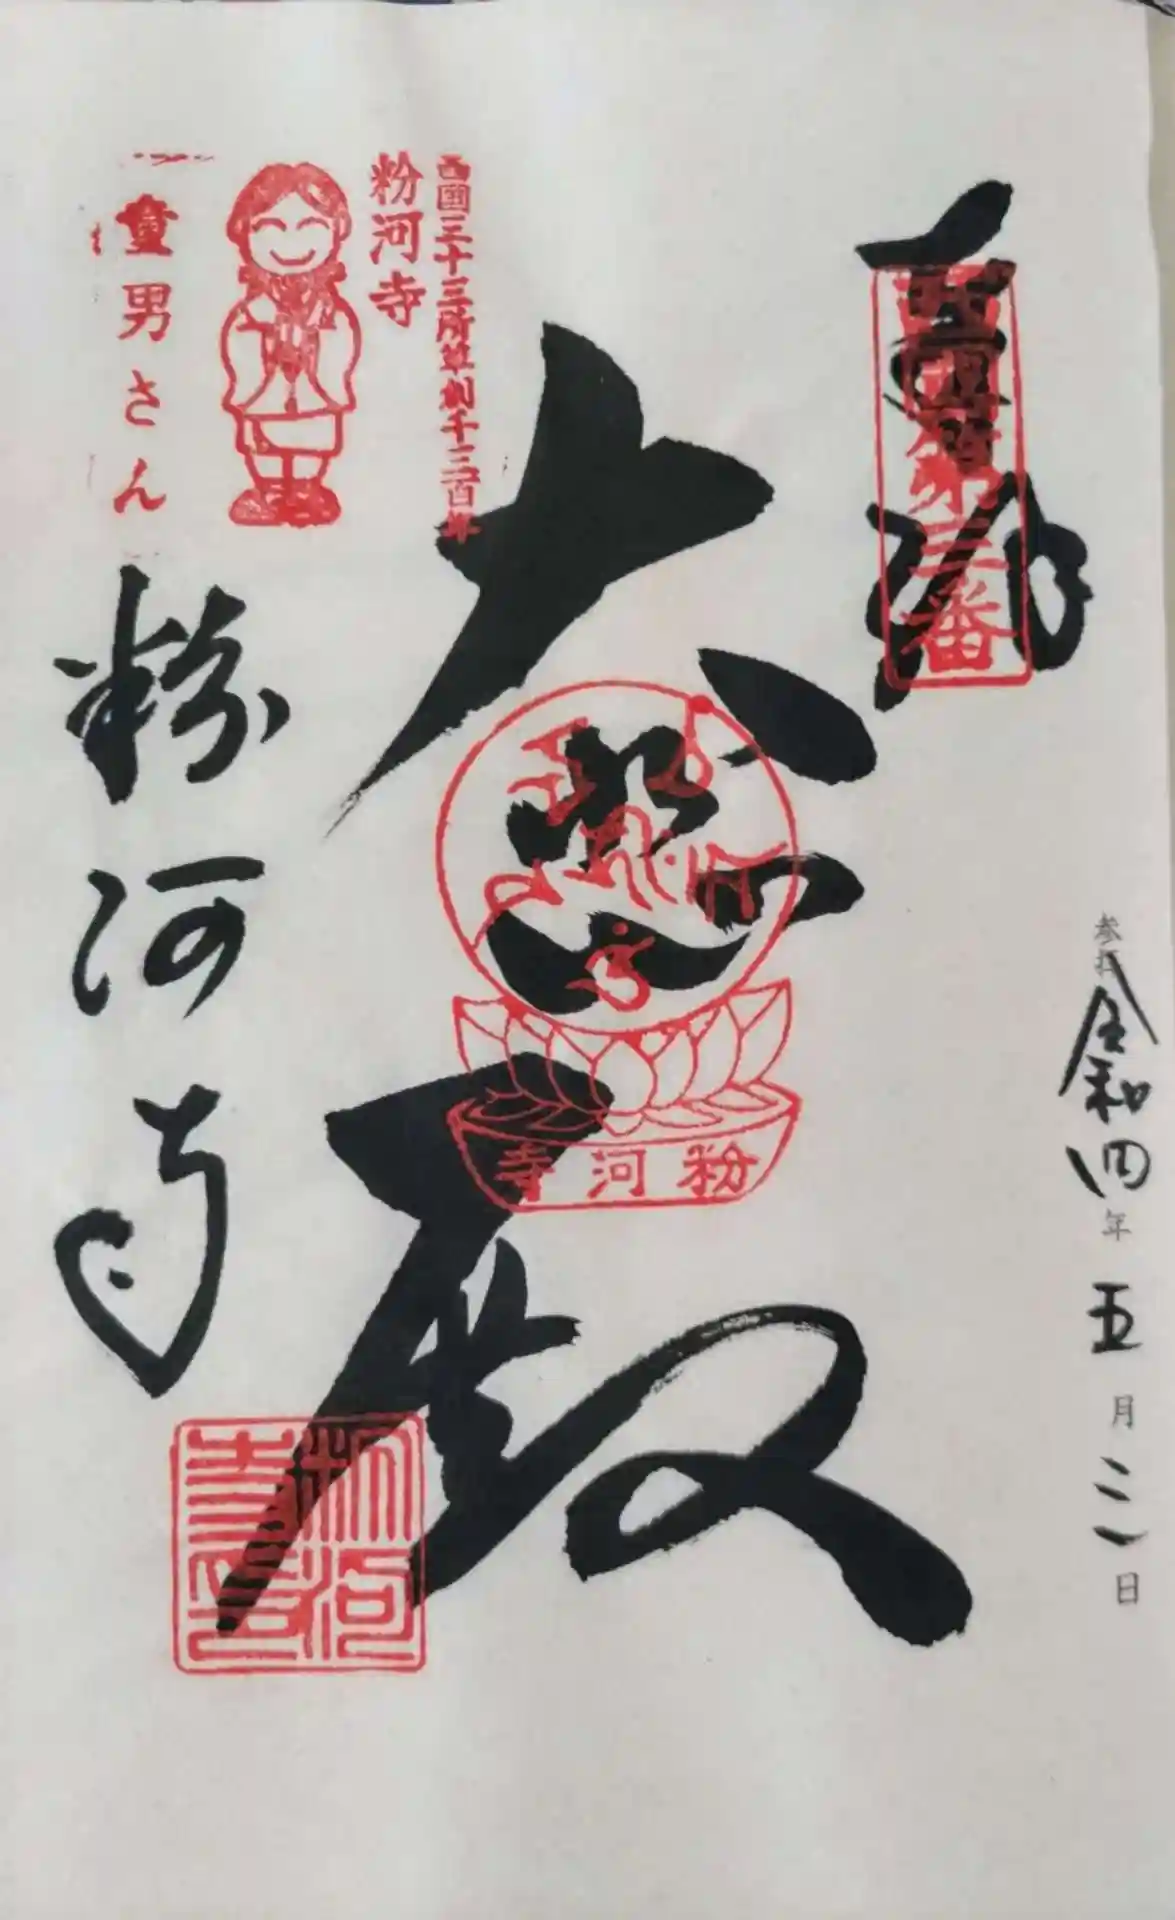 参拝 令和四年五月二日
奉拝
西国第三番
大悲殿
粉河寺
西国三十三所草創千三百年
粉河寺
童男さん
粉河寺
粉河寺印